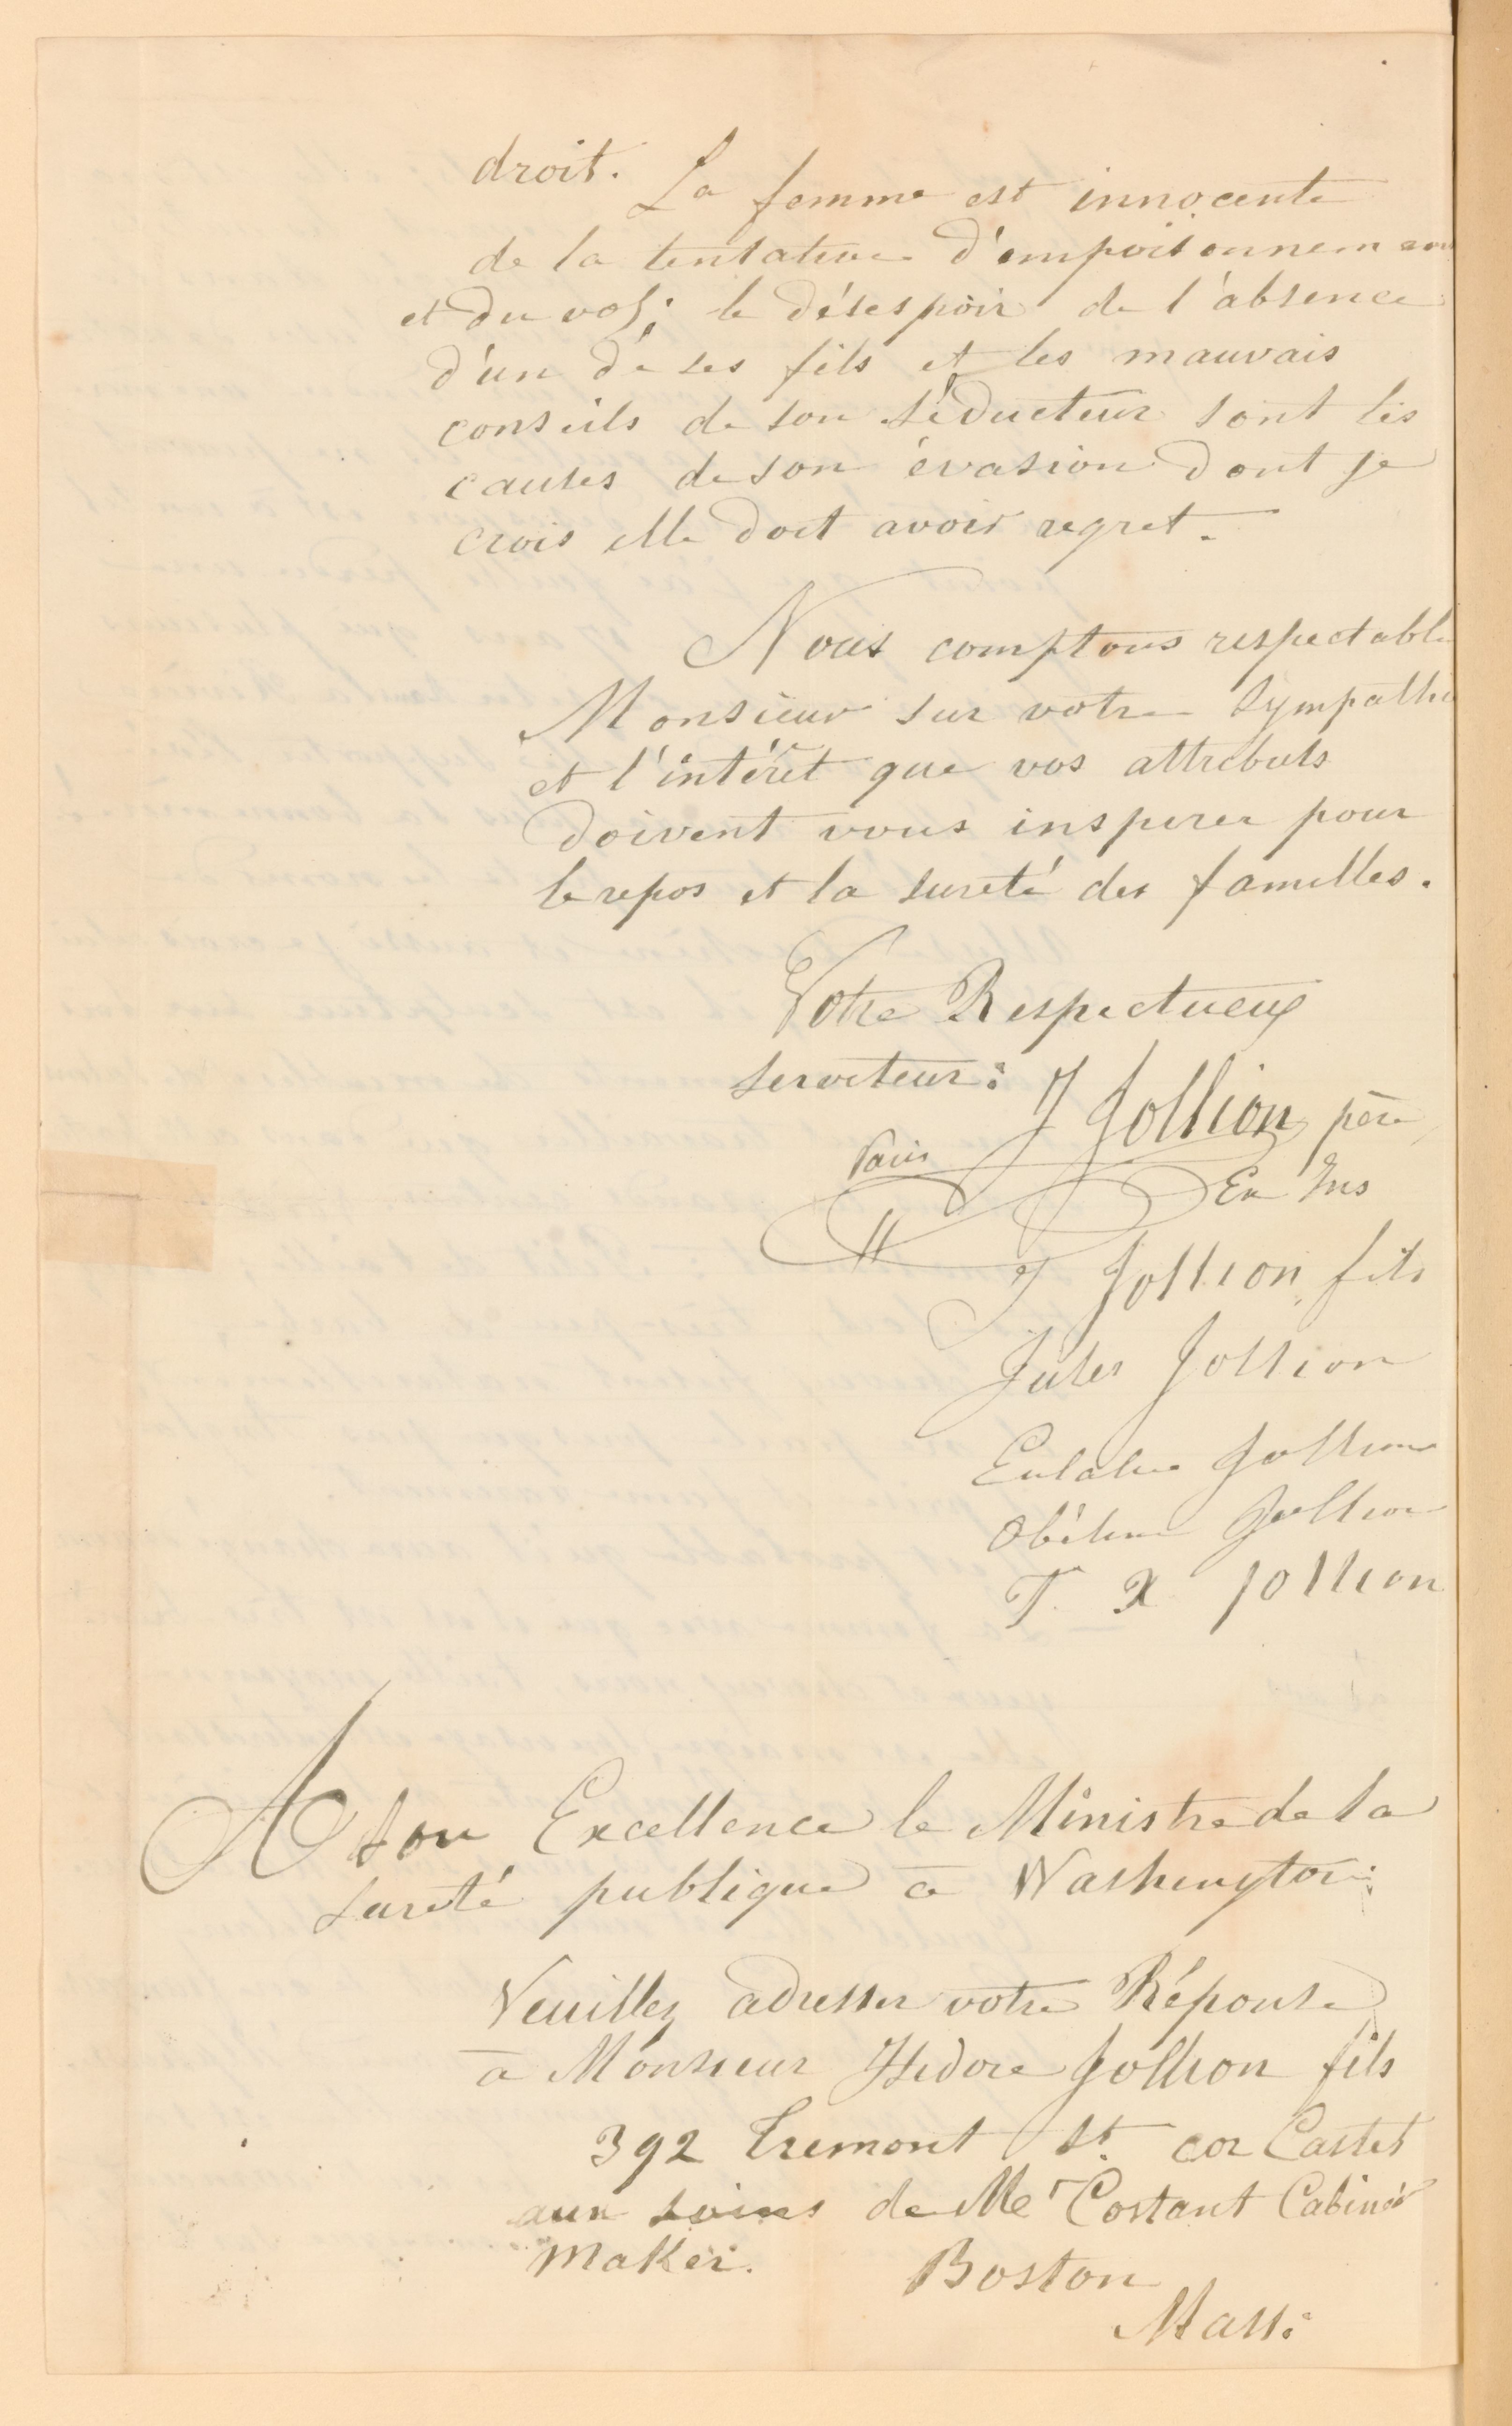 droit.
La femme est innocente
de la tentative d'empoisonnem
et du vol; le désespoir de l'absence
d'un de ses fils et les mauvais
conseils de son séducteur sont les
causes de son évasion dont je
crois elle doit avoir regret.
Nous comptons respectable
Monsieur sur votre sympathie
et l'intérêt que vos attributs
doivent vous inspirer pour
le repos et la sureté des familles.
Votre Respectueux
serviteur: J Jollion père
J Jollion fils
Jules Jollion
Eulalie Jollion
Jollion
T. X Jollion
A son Excellence le Ministre de la
sureté publique à Washington:
Veuillez adresser votre Réponse
à Monsieur Isidore Jollion fils
392 Tremont St. cor Castet
aux soins de Mr Costant Cabinet
Maker. Boston
Mass: